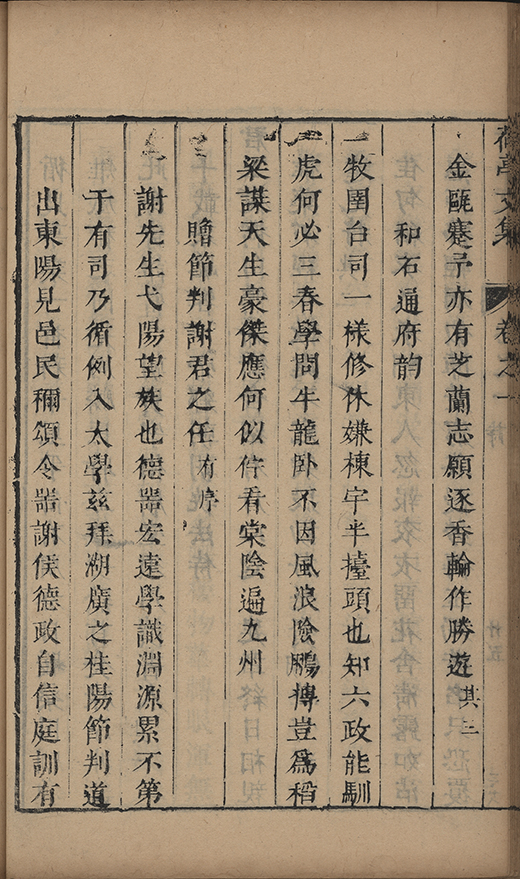 荷亭文集 卷之一
金甌蹇予亦有芝蘭志願逐香輪作勝遊其三
和石通府韵
牧圉台司一樣修休嫌棟宇半擡頭也知六政能馴
虎何必三春學問牛龍卧不因風浪險鵬摶豈爲稻
梁謀天生豪傑應何似佇看棠陰遍九州
贈節判謝君之任有序
謝先生弋陽望族也德噐宏遠學識淵源累不第
于有司乃循例入太學兹拜湖廣之桂陽節判道
出東陽見邑民穪頌令噐謝侯德政自信庭訓有